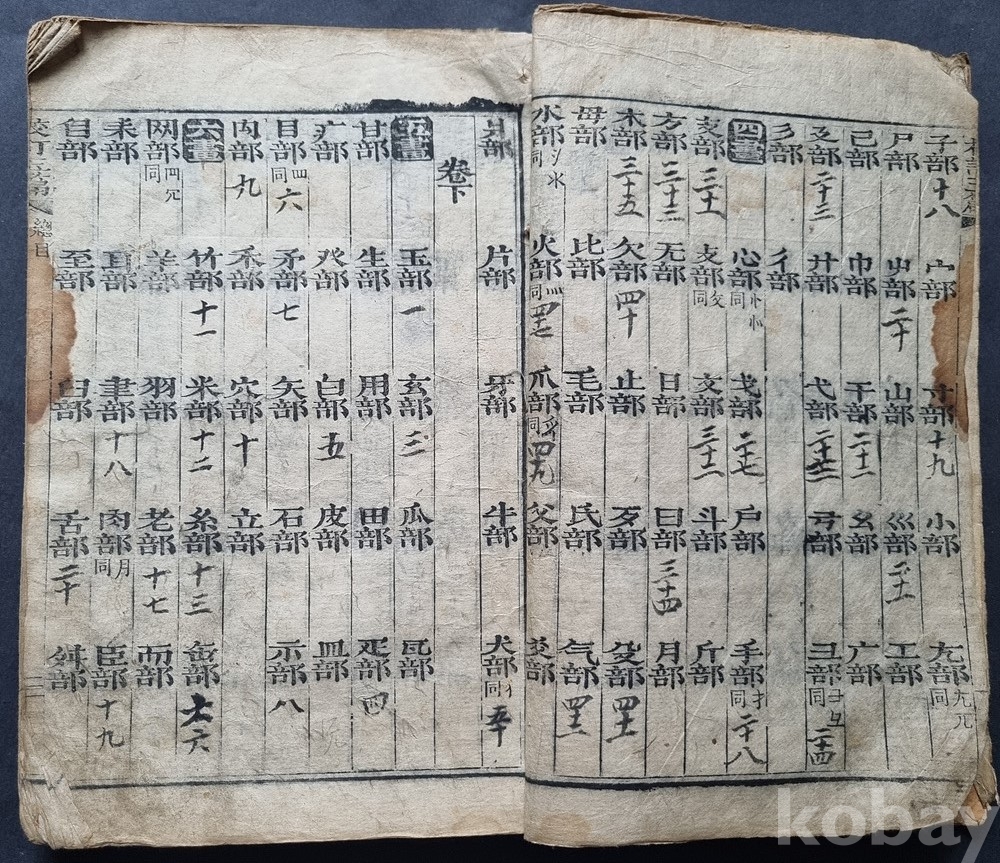 子部十八 宀部 寸部十九 小部 尢部同尣兀
尸部 屮部二十 山部 巛部二十一 工部
已部 巾部 干部二十二 幺部 广部
廴部二十三 廾部 弋部 弓部 彐部同彑二十四
彡部 彳部
四畫 心部同忄㣺 戈部二十七 戶部 手部同扌二十八
支部三十一 攴部同攵 文部三十二 斗部 斤部
方部三十三 无部 日部 曰部三十四 月部
木部三十五 欠部四十 止部 歹部 殳部四十一
毋部 比部 毛部 氏部 气部
水部同氵氺 火部同灬 爪部同爫四十九 父部 爻部
爿部 片部 牙部 牛部 犬部同犭五十
卷下
五畫 玉部一 玄部三 瓜部 瓦部
甘部 生部 用部 田部 疋部四
疒部 癶部 白部五 皮部 皿部
目部同罒六 矛部七 矢部 石部 示部八
禸部九 禾部 穴部十 立部
六畫 竹部十一 米部十二 糸部十三 缶部十六
网部同 羊部 羽部 老部十七 而部
耒部 耳部 聿部十八 肉部同月 臣部十九
自部 至部 臼部 舌部二十 舛部
總目
kobay